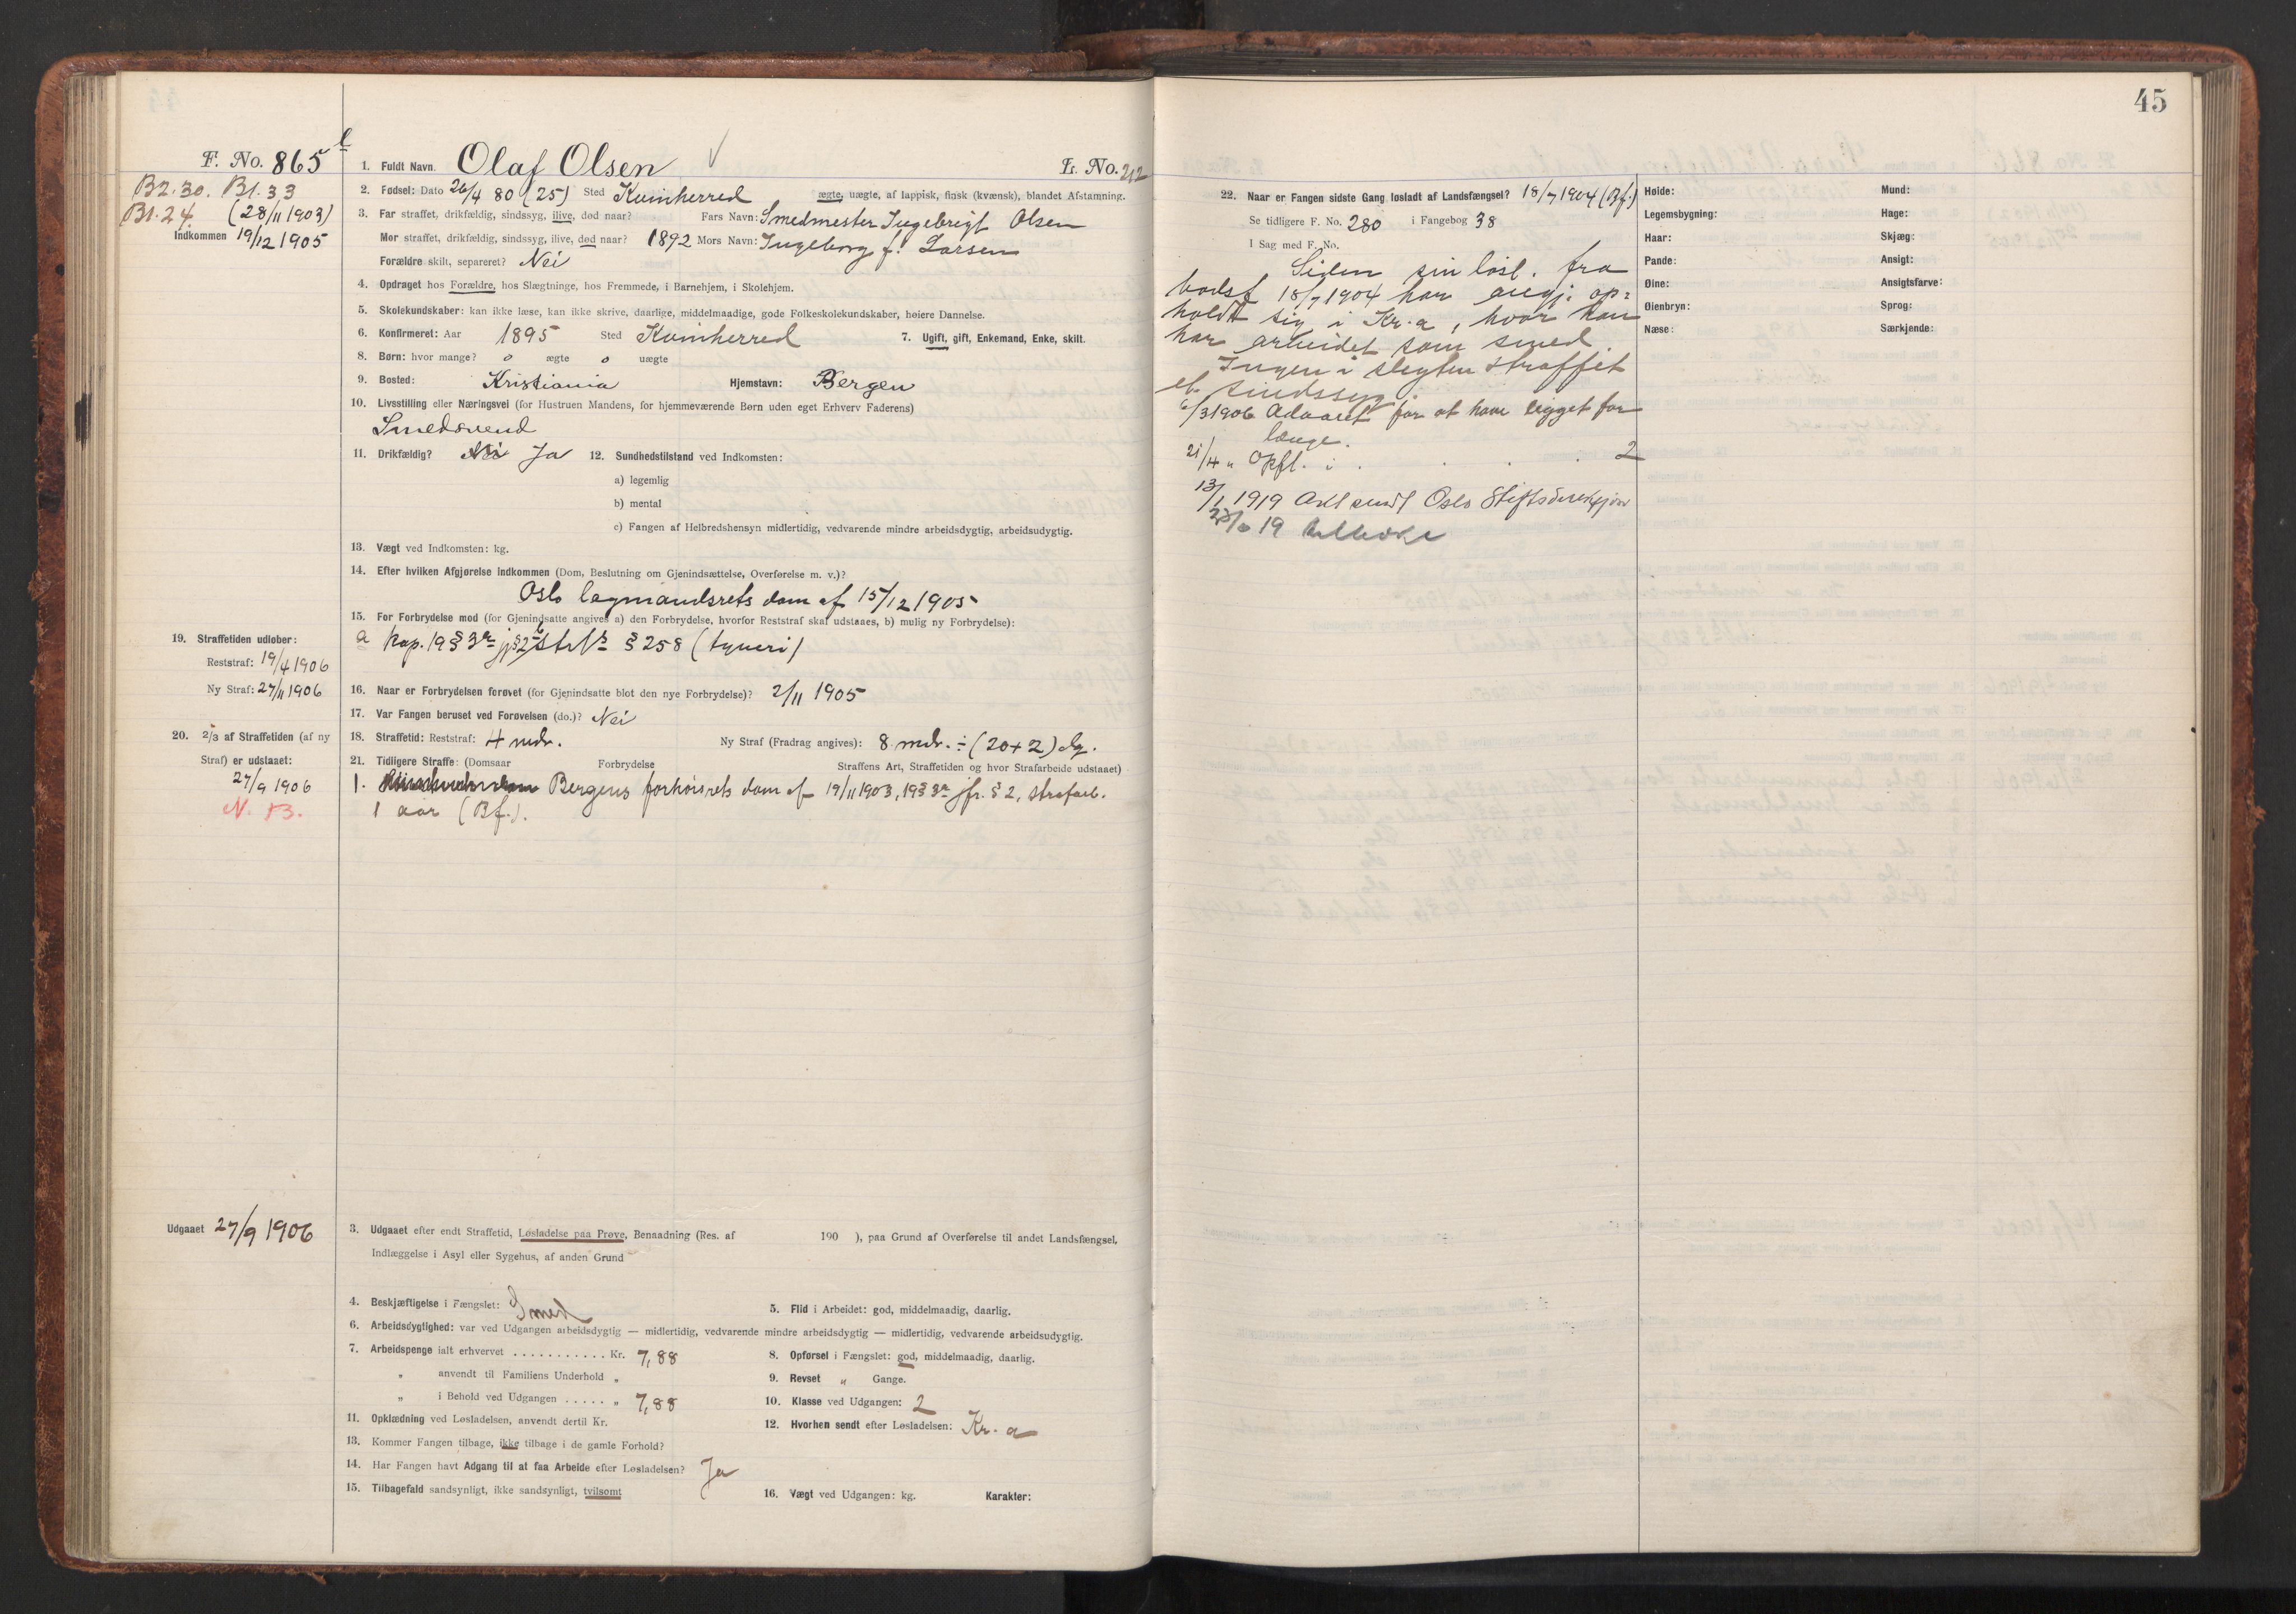 45
F. No. 865
1. Fuldt Navn Olaf Olsen
L. No. 212
B2.30. B1.33
B1.24. (28/11 1903)
Indkommen 19/12 1905
2. Fødsel: Dato 26/4 80 (25) Sted Kvinherred ægte, uægte, af lappisk, finsk (kvænsk), blandet Afstamning.
3. Far straffet, drikfældig, sindssyg, ilive, død naar? Fars Navn: Smedmester Ingebrigt Olsen
Mor straffet, drikfældig, sindssyg, ilive, død naar? 1892 Mors Navn: Ingeborg f. Larsen
Forældre skilt, separeret? Nei
4. Opdraget hos Forældre, hos Slægtninge, hos Fremmede, i Barnehjem, i Skolehjem.
5. Skolekundskaber: kan ikke læse, kan ikke skrive, daarlige, middelmaadige, gode Folkeskolekundskaber, høiere Dannelse.
6. Konfirmeret: Aar 1895 Sted Kvinherred 7. Ugift, gift, Enkemand, Enke, skilt.
8. Børn: hvor mange? 0 ægte 0 uægte
9. Bosted: Kristiania Hjemstavn: Bergen
10. Livsstilling eller Næringsvei (for Hustruen Mandens, for hjemmeværende Børn uden eget Erhverv Faderens)
Smedsvend
11. Drikfældig? Nei Ja 12. Sundhedstilstand ved Indkomsten:
a) legemlig
b) mental
c) Fangen af Helbredshensyn midlertidig, vedvarende mindre arbeidsdygtig, arbeidsudygtig.
13. Vægt ved Indkomsten: kg.
14. Efter hvilken Afgjørelse indkommen (Dom, Beslutning om Gjenindsættelse, Overførelse m. v.)?
Oslo lagmandsrets dom af 15/12 1905
15. For Forbrydelse mod (for Gjenindsatte angives a) den Forbrydelse, hvorfor Reststraf skal udstaaes, b) mulig ny Forbrydelse):
a kap. 19 § 3 jfr § 2 b § 258 (tyveri)
19. Straffetiden udløber:
Reststraf: 19/4 1906
Ny Straf: 27/11 1906
16. Naar er Forbrydelsen forøvet (for Gjenindsatte blot den nye Forbrydelse)? 2/11 1905
17. Var Fangen beruset ved Forøvelsen (do.)? Nei
18. Straffetid: Reststraf: 4 mdr. Ny Straf (Fradrag angives): 8 mdr. ÷ (20+2) dg.
20. 2/3 af Straffetiden (af ny
Straf) er udstaaet:
27/9 1906
N. B.
21. Tidligere Straffe: (Domsaar Forbrydelse Straffens Art, Straffetiden og hvor Strafarbeide udstaaet)
1. Bergens forhørsrets dom af 19/11 1903, 19 § 3 jfr. § 2, strafarb.
1 aar (Bf.).
Udgaaet 27/9 1906
3. Udgaaet efter endt Straffetid, Løsladelse paa Prøve, Benaadning (Res. af 190 ), paa Grund af Overførelse til andet Landsfængsel,
Indlæggelse i Asyl eller Sygehus, af anden Grund
4. Beskjæftigelse i Fængslet: Smed 5. Flid i Arbeidet: god, middelmaadig, daarlig.
6. Arbeidsdygtighed: var ved Udgangen arbeidsdygtig — midlertidig, vedvarende mindre arbeidsdygtig — midlertidig, vedvarende arbeidsudygtig.
7. Arbeidspenge ialt erhvervet . . . . . . . . . . . Kr. 7,88 8. Opførsel i Fængslet: god, middelmaadig, daarlig.
„ anvendt til Familiens Underhold „ 9. Revset „ Gange.
„ i Behold ved Udgangen . . . . . „ 7,88 10. Klasse ved Udgangen: 2
11. Opklædning ved Løsladelsen, anvendt dertil Kr. 12. Hvorhen sendt efter Løsladelsen: Kr.a
13. Kommer Fangen tilbage, ikke tilbage i de gamle Forhold?
14. Har Fangen havt Adgang til at faa Arbeide efter Løsladelsen? Ja
15. Tilbagefald sandsynligt, ikke sandsynligt, tvilsomt 16. Vægt ved Udgangen: kg. Karakter:
22. Naar er Fangen sidste Gang løsladt af Landsfængsel? 18/7 1904 (Bf.)
Se tidligere F. No. 280 i Fangebog 38
I Sag med F. No.
Siden sin løsl. fra
bodsf 18/7 1904 har angj. op=
holdt sig i Kr.a, hvor han
har arbeidet som smed.
Ingen i slegten straffet
el. sindssyg.
6/3 1906 Advaret for at have ligget for
længe.
21/4 „ Opfl. i . . . . 2
13/1 1919 Akt sendt Oslo Stiftsdirektion
19 tilbake
Høide: Mund:
Legemsbygning: Hage:
Haar: Skjæg:
Pande: Ansigt:
Øine: Ansigtsfarve:
Øienbryn: Sprog:
Næse: Særkjende: